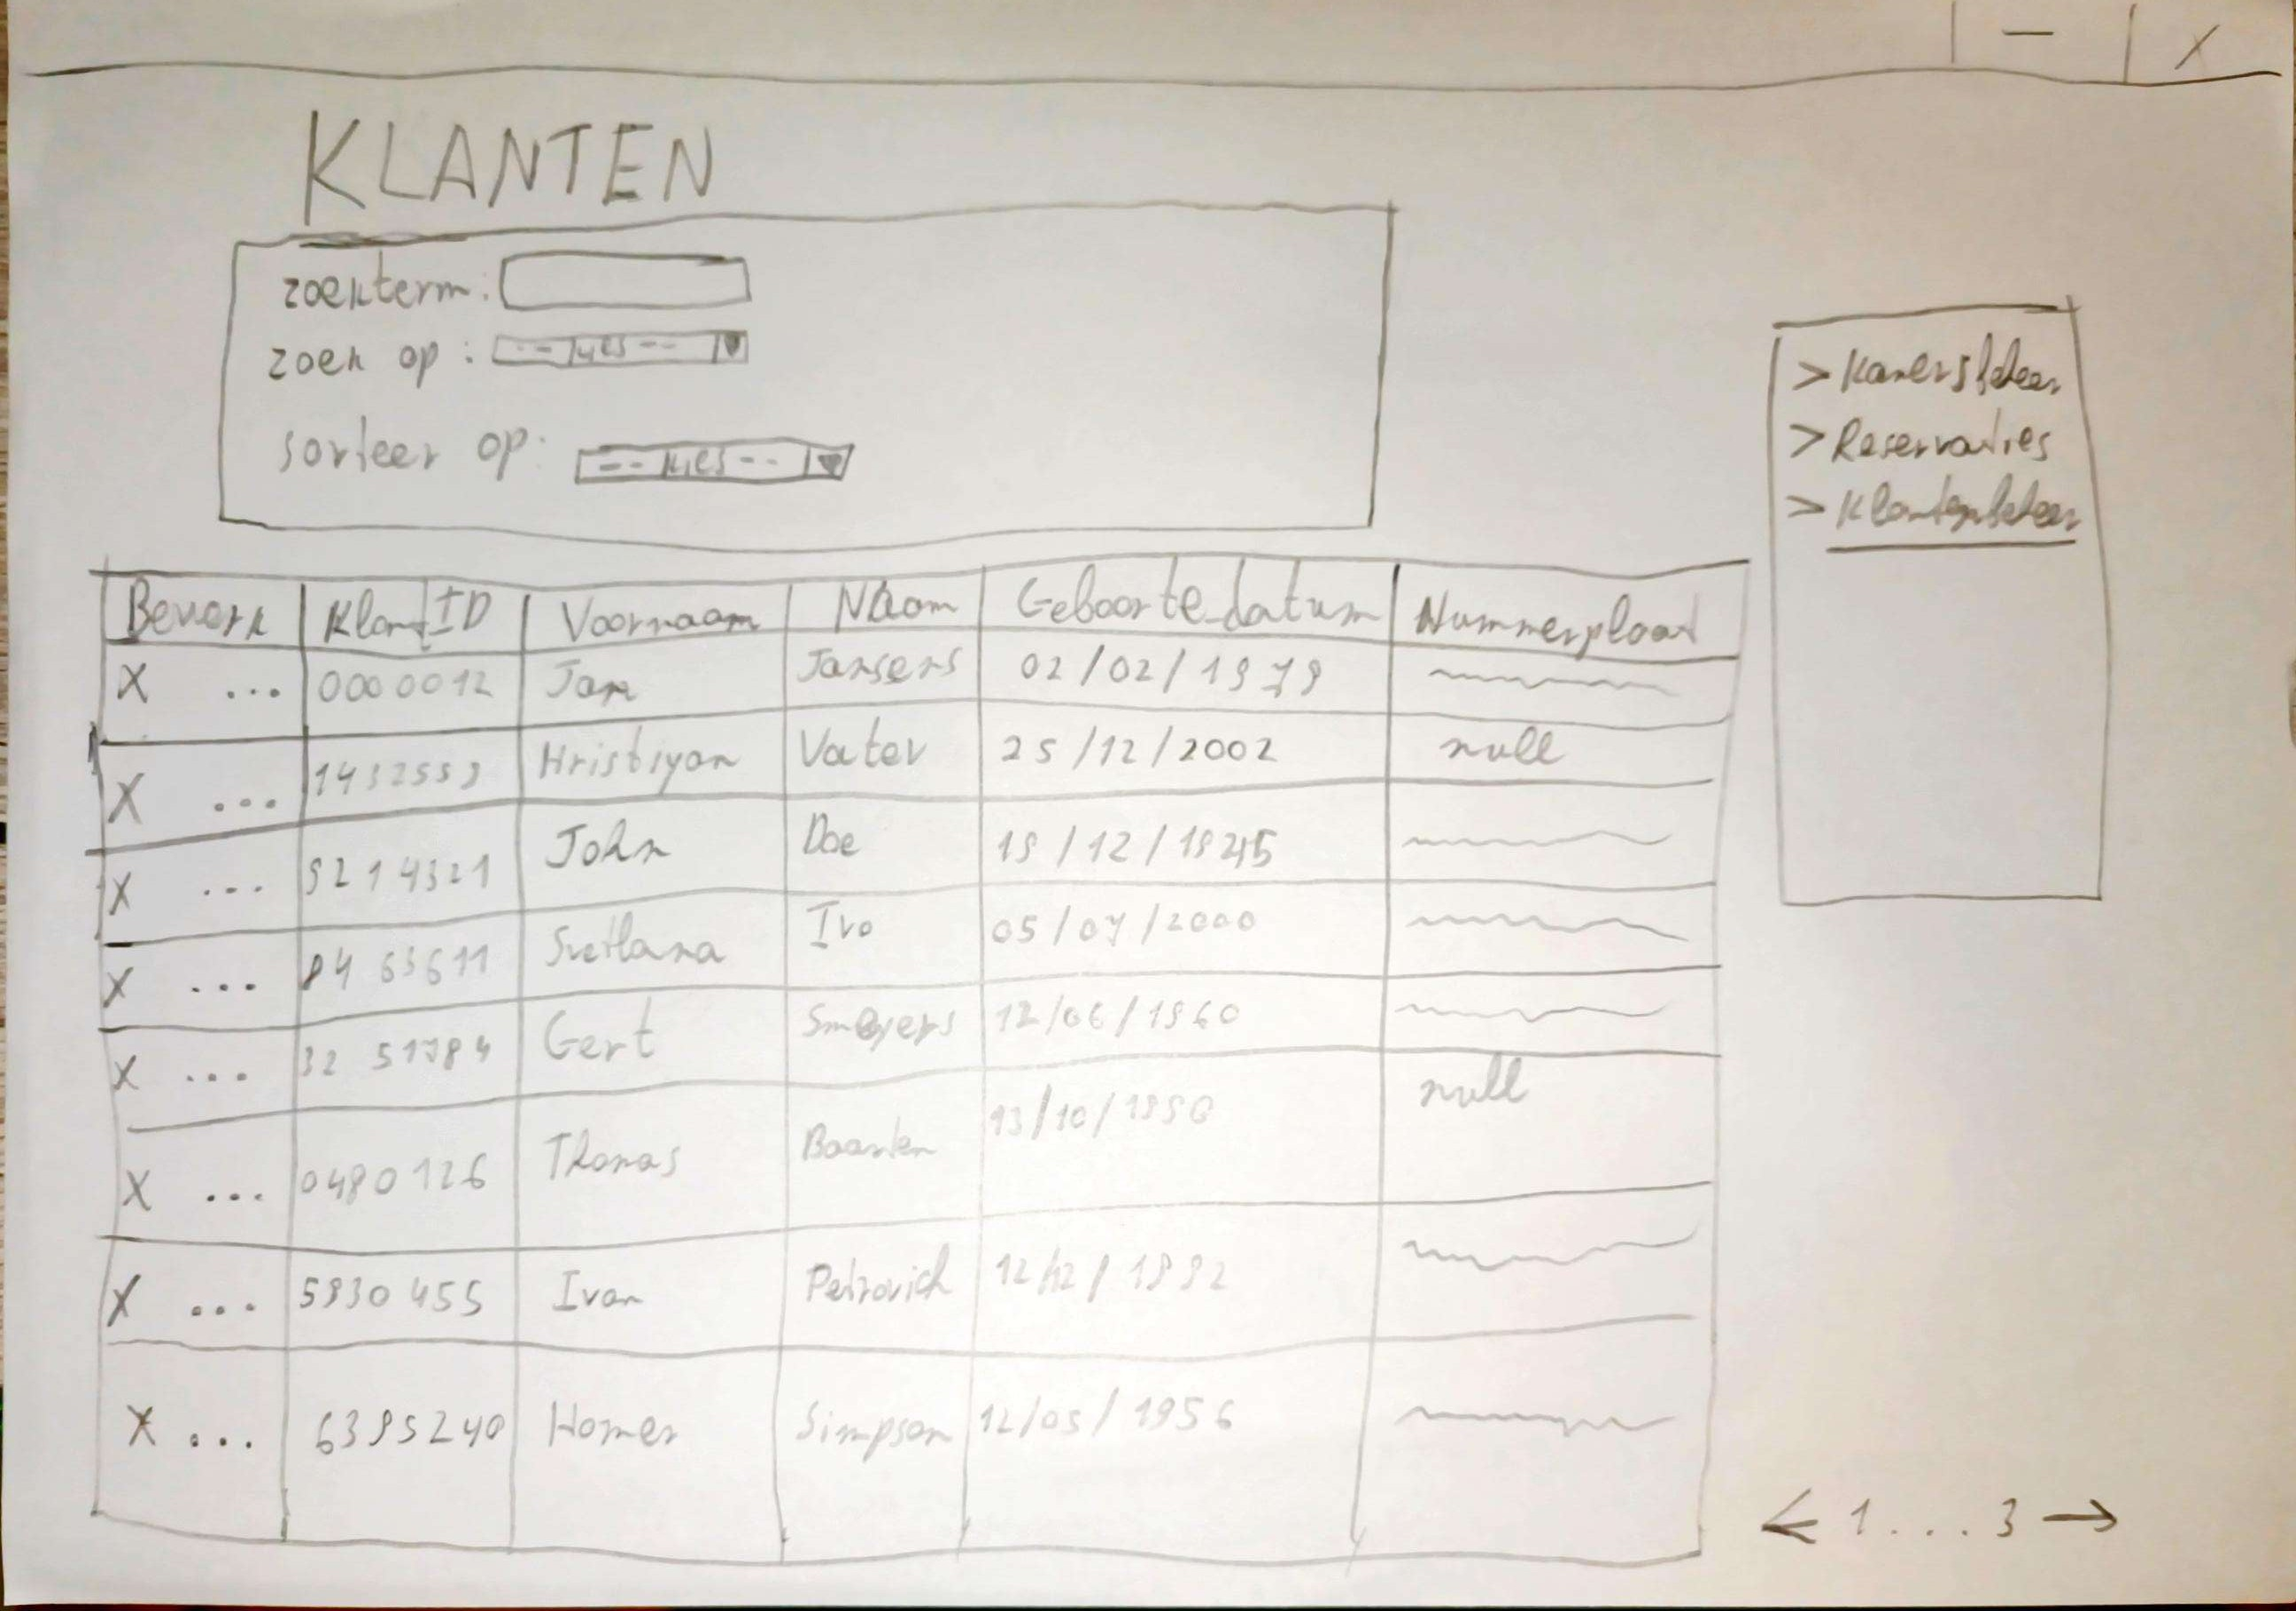 — X
KLANTEN
zoekterm:
zoek op: -- kies --
sorteer op: -- kies --
> Kamersbeheer
> Reservaties
> Klantenbeheer
Bewerk Klant ID Voornaam Naam Geboorte datum Nummerplaat
X ... 0000012 Jan Jansens 02/02/1979
X ... 1432553 Hristiyan Vatev 25/12/2002 null
X ... 5214321 John Doe 19/12/1945
X ... 8463611 Svetlana Ivo 05/07/2000
X ... 3251784 Gert Smeyers 12/06/1960
X ... 0480126 Thomas Baarten 13/10/1990 null
X ... 5930455 Ivan Petrovich 12/12/1992
X ... 6395240 Homer Simpson 12/05/1956
← 1 .... 3 →